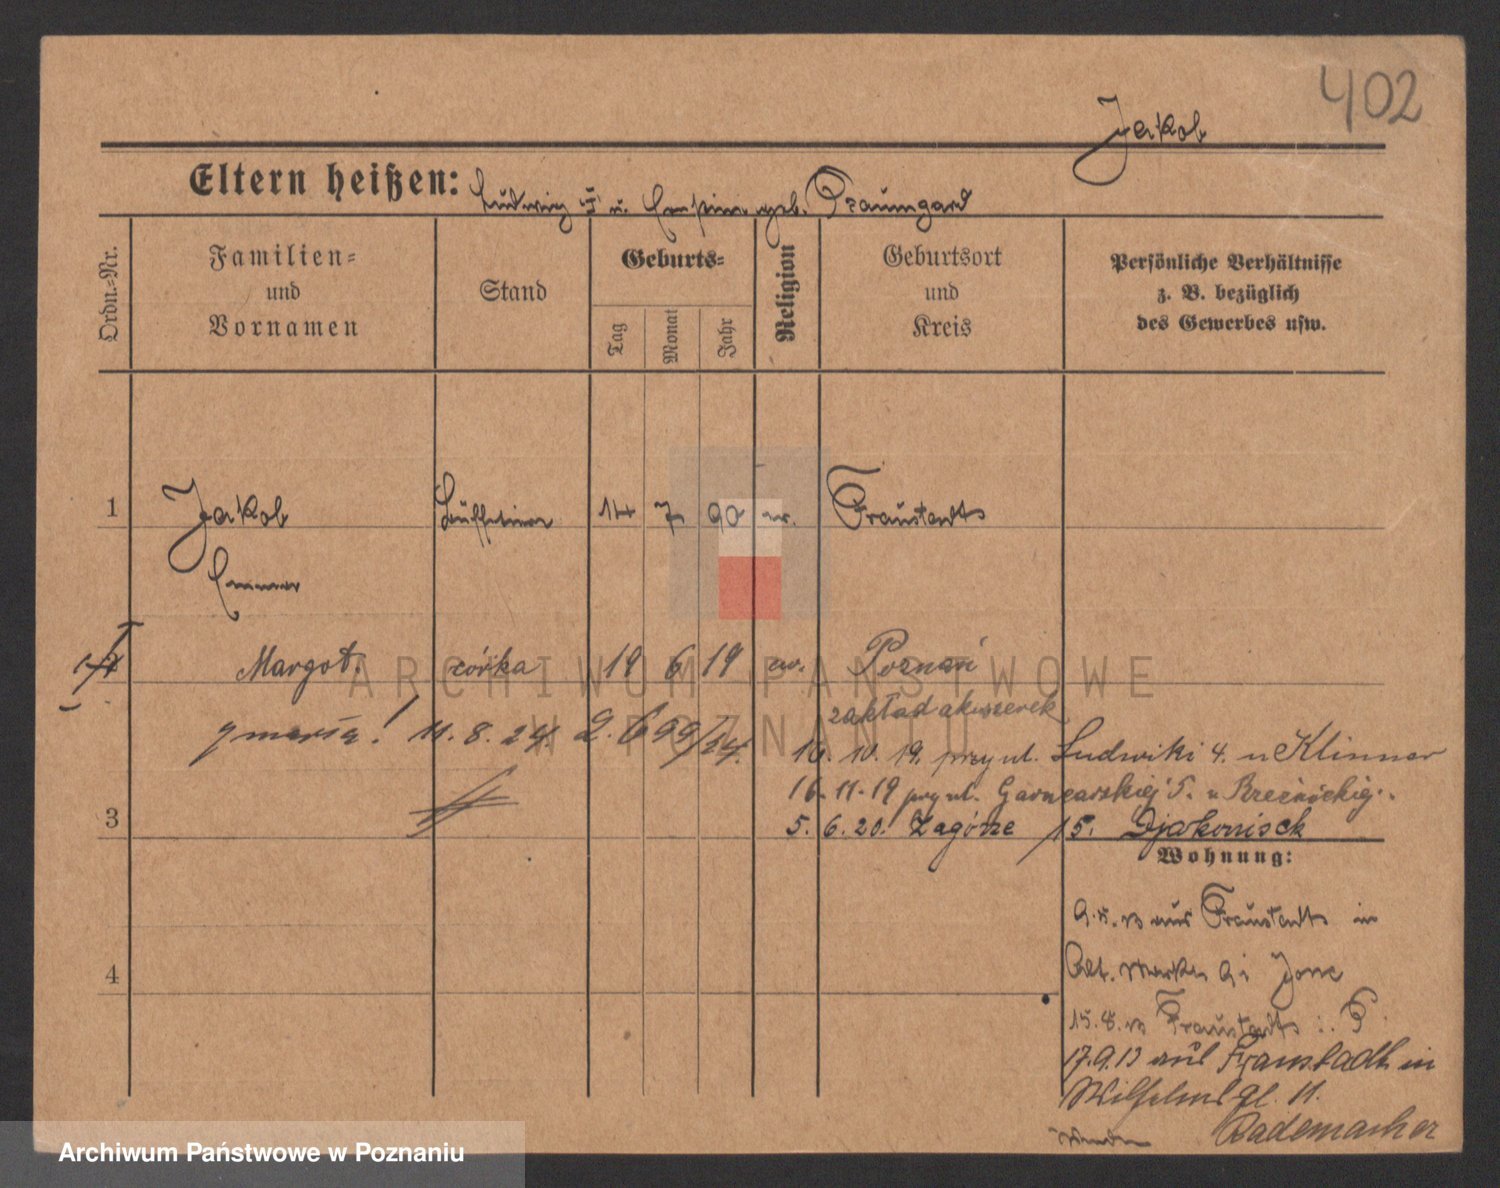 402
Jakob
Eltern heißen: Ludwig I u. Ernstine geb. Braungard
Ordn.-Nr.
Familien-
und
Vornamen
Stand
Geburts-
Tag
Monat
Jahr
Religion
Geburtsort
und
Kreis
Persönliche Verhältnisse
z. B. bezüglich
des Gewerbes usw.
1 Jakob 14 7 90 ev. Fraustadt
Emma
2 Margot córka 19 6 19 ew. Poznań
zakład akuszerek
zmarła! 11. 8. 24. 2. 6 99/24.
16. 10. 19. przy ul. Ludwiki 4. u Klinner
16. 11. 19 przy ul. Garncarskiej 5. u
3
5. 6. 20. Zagórze 15. Djakonisck
Wohnung:
aus Fraustadt in
4
15. 8. 13 Fraustadt
17.9.13 aus Fraustadt in
Wilhelmspl. 11.
Rademacher
Wenden
ARCHIWUM PAŃSTWOWE
W POZNANIU
Archiwum Państwowe w Poznaniu